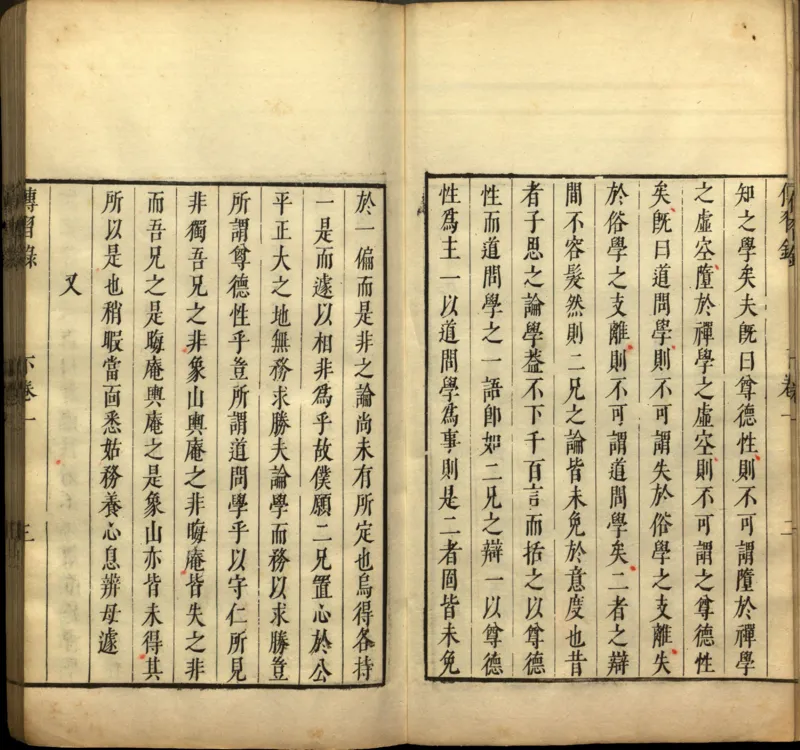 傳習錄 卷一 二
知之學矣夫旣曰尊德性則不可謂墮於禪學
之虛空墮於禪學之虛空則不可謂之尊德性
矣旣曰道問學則不可謂失於俗學之支離失
於俗學之支離則不可謂道問學矣二者之辯
間不容髮然則二兄之論皆未免於意度也昔
者子思之論學葢不下千百言而括之以尊德
性而道問學之一語卽如二兄之辯一以尊德
性爲主一以道問學爲事則是二者固皆未免
於一偏而是非之論尚未有所定也烏得各持
一是而遽以相非爲乎故僕願二兄置心於公
平正大之地無務求勝夫論學而務以求勝豈
所謂尊德性乎豈所謂道問學乎以守仁所見
非獨吾兄之非象山輿庵之非晦庵皆失之非
而吾兄之是晦庵輿庵之是象山亦皆未得其
所以是也稍暇當面悉姑務養心息辨毋遽
又
傳習錄 下卷一 三